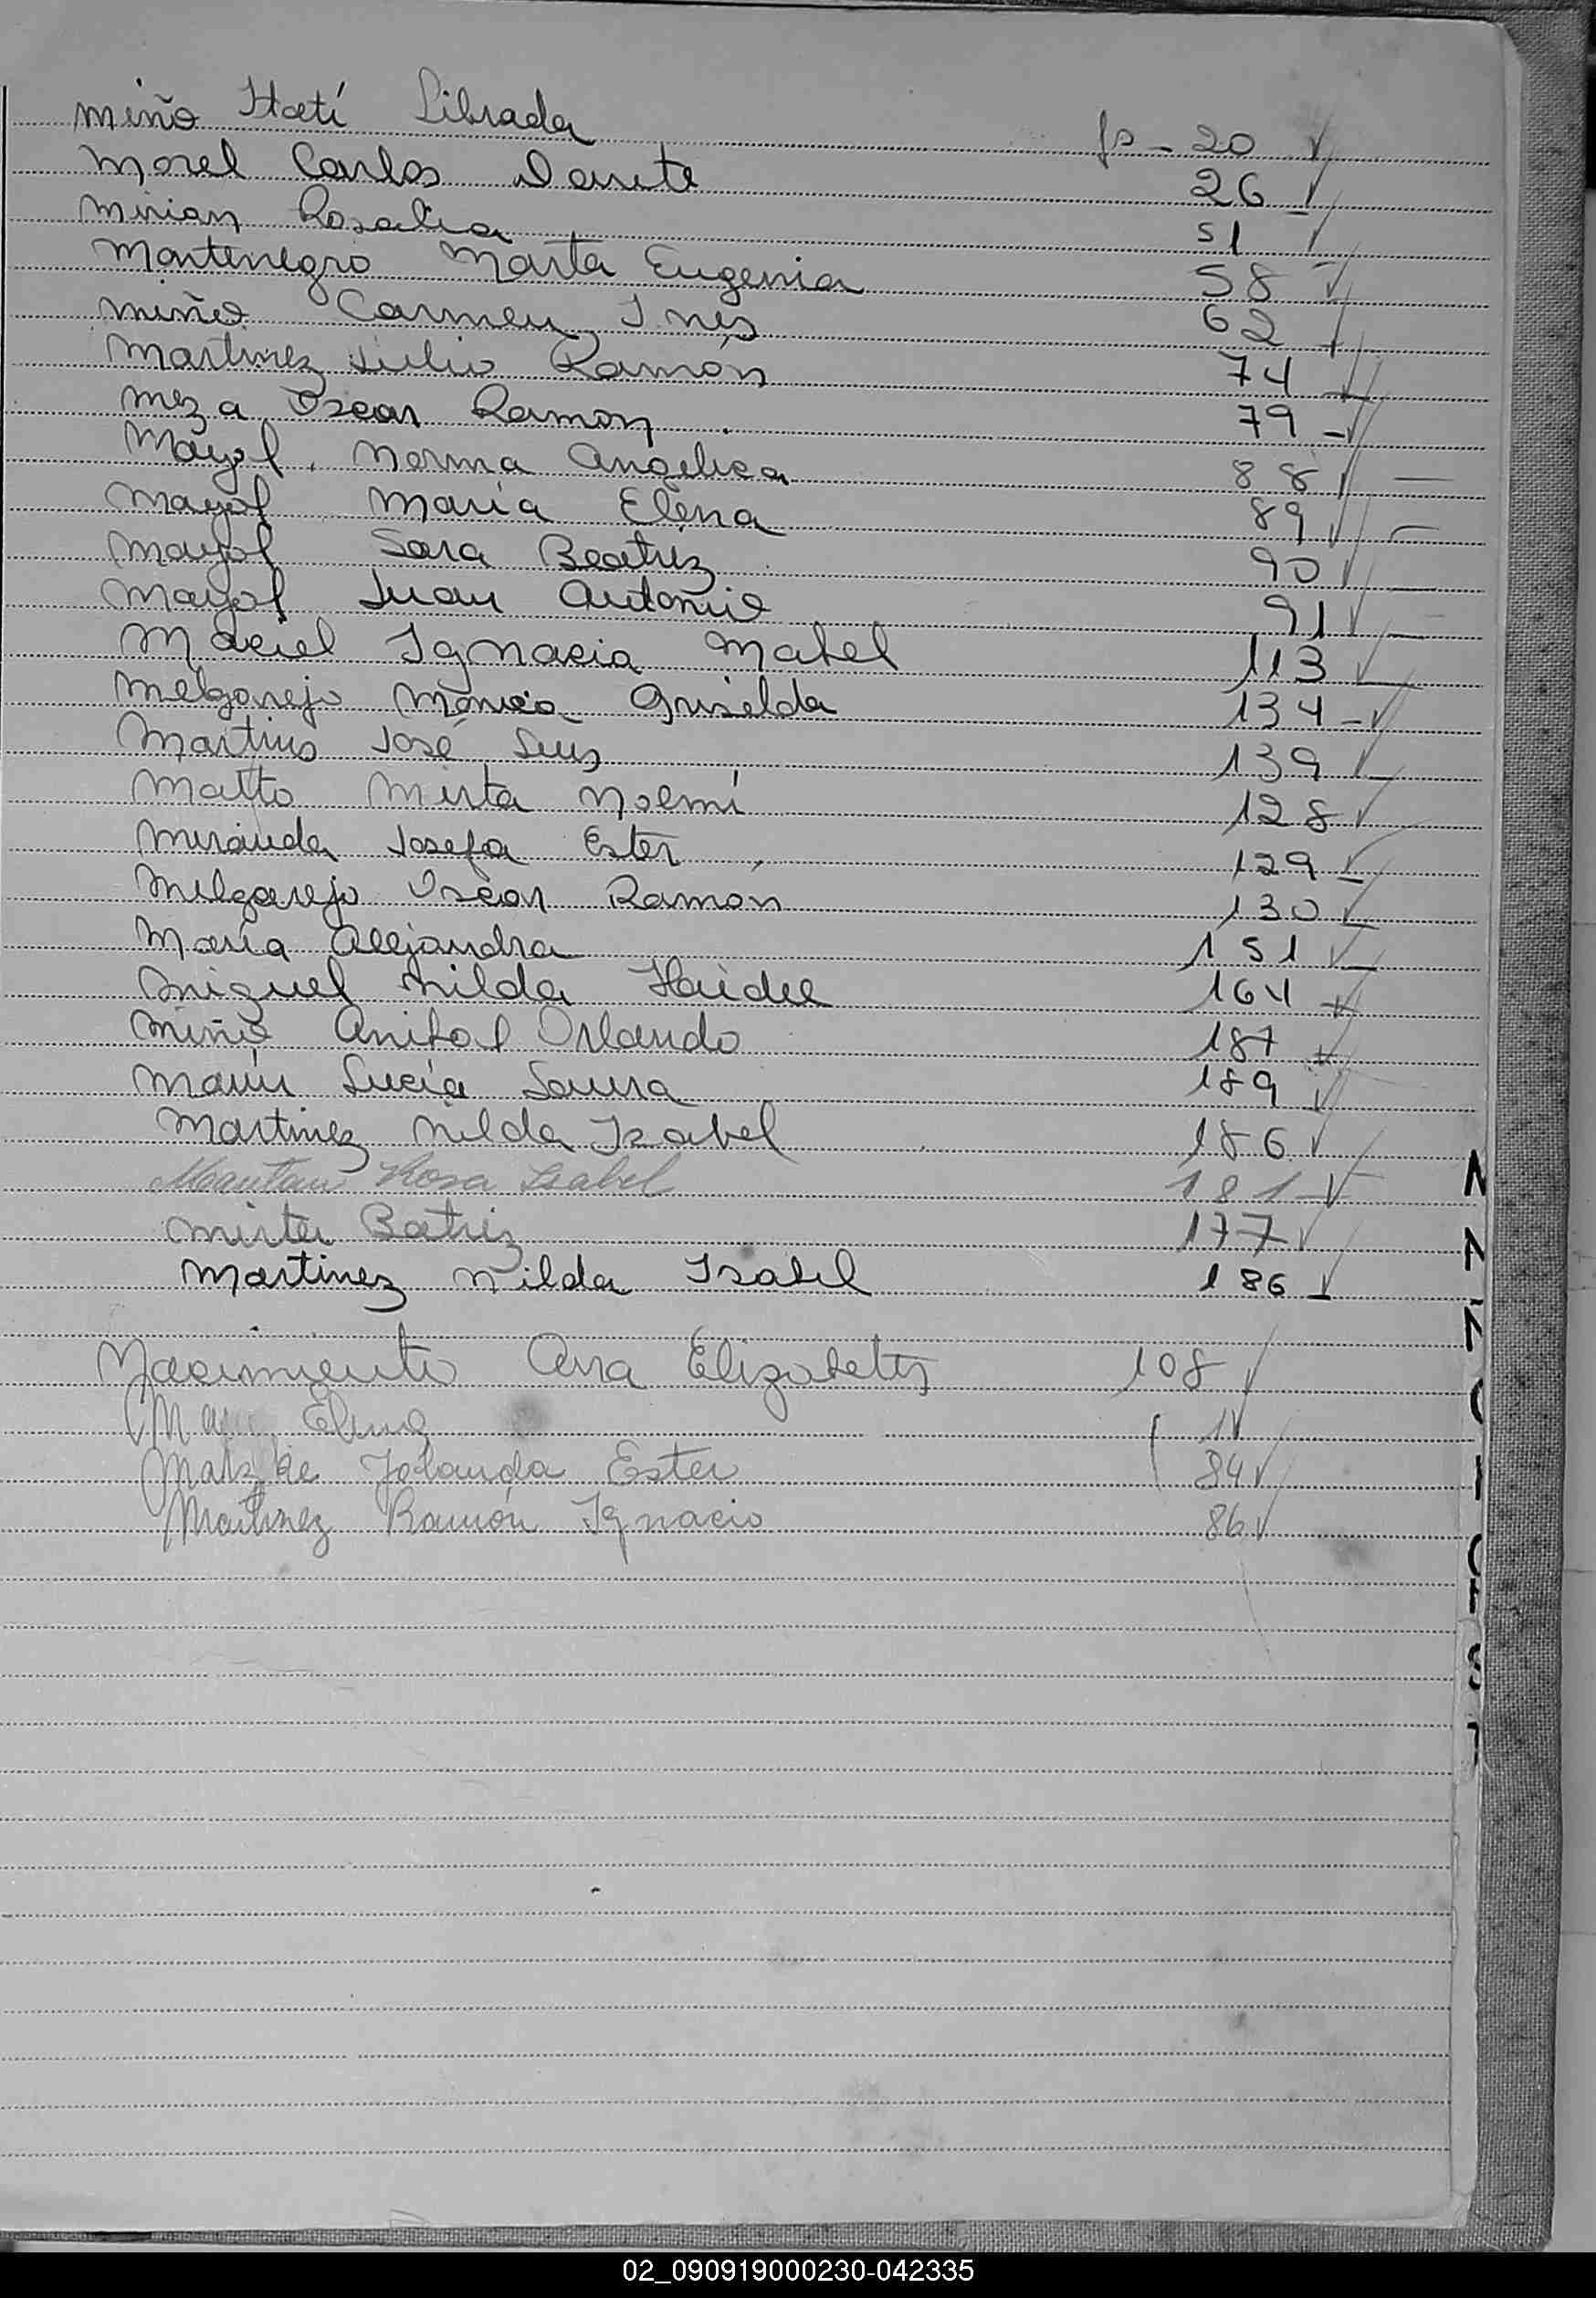 Miño Itatí Librada fs - 20 ✓
Morel Carlos Dante 26 - ✓
Mirian Rosalia 51 ✓
Montenegro Marta Eugenia 58 - ✓
Miño Carmen Inés 62 ✓
Martinez Julio Ramón 74 - ✓
Meza Oscar Ramon 79 - ✓
Mayol Norma Angelica 88 ✓ -
Mayol María Elena 89 ✓ -
Mayol Sara Beatriz 90 ✓ -
Mayol Juan Antonio 91 ✓ -
Maciel Ignacia Mabel 113 ✓
Melgarejo Mónica Griselda 134 - ✓
Martins José Luis 139 ✓
Matto Mirta Noemí 128 ✓
Miranda Josefa Ester 129 - ✓
Melgarejo Oscar Ramón 130 ✓
María Alejandra 151 ✓
Miguel Nilda Haidee 164 ✓
Miño Anibal Orlando 187 ✓
Marín Lucía Laura 189 ✓
Martinez Nilda Isabel 186 ✓
Rosa Isabel 181 - ✓
Mirta Batriz 177 ✓
Martinez Nilda Isabel 186 ✓
Nacimiento Ana Elizabeth 108 ✓
Elena 1 ✓
Matzke Yolanda Ester 84 ✓
Martinez Ramón Ignacio 86 ✓
N
N
Ñ
02_090919000230-042335